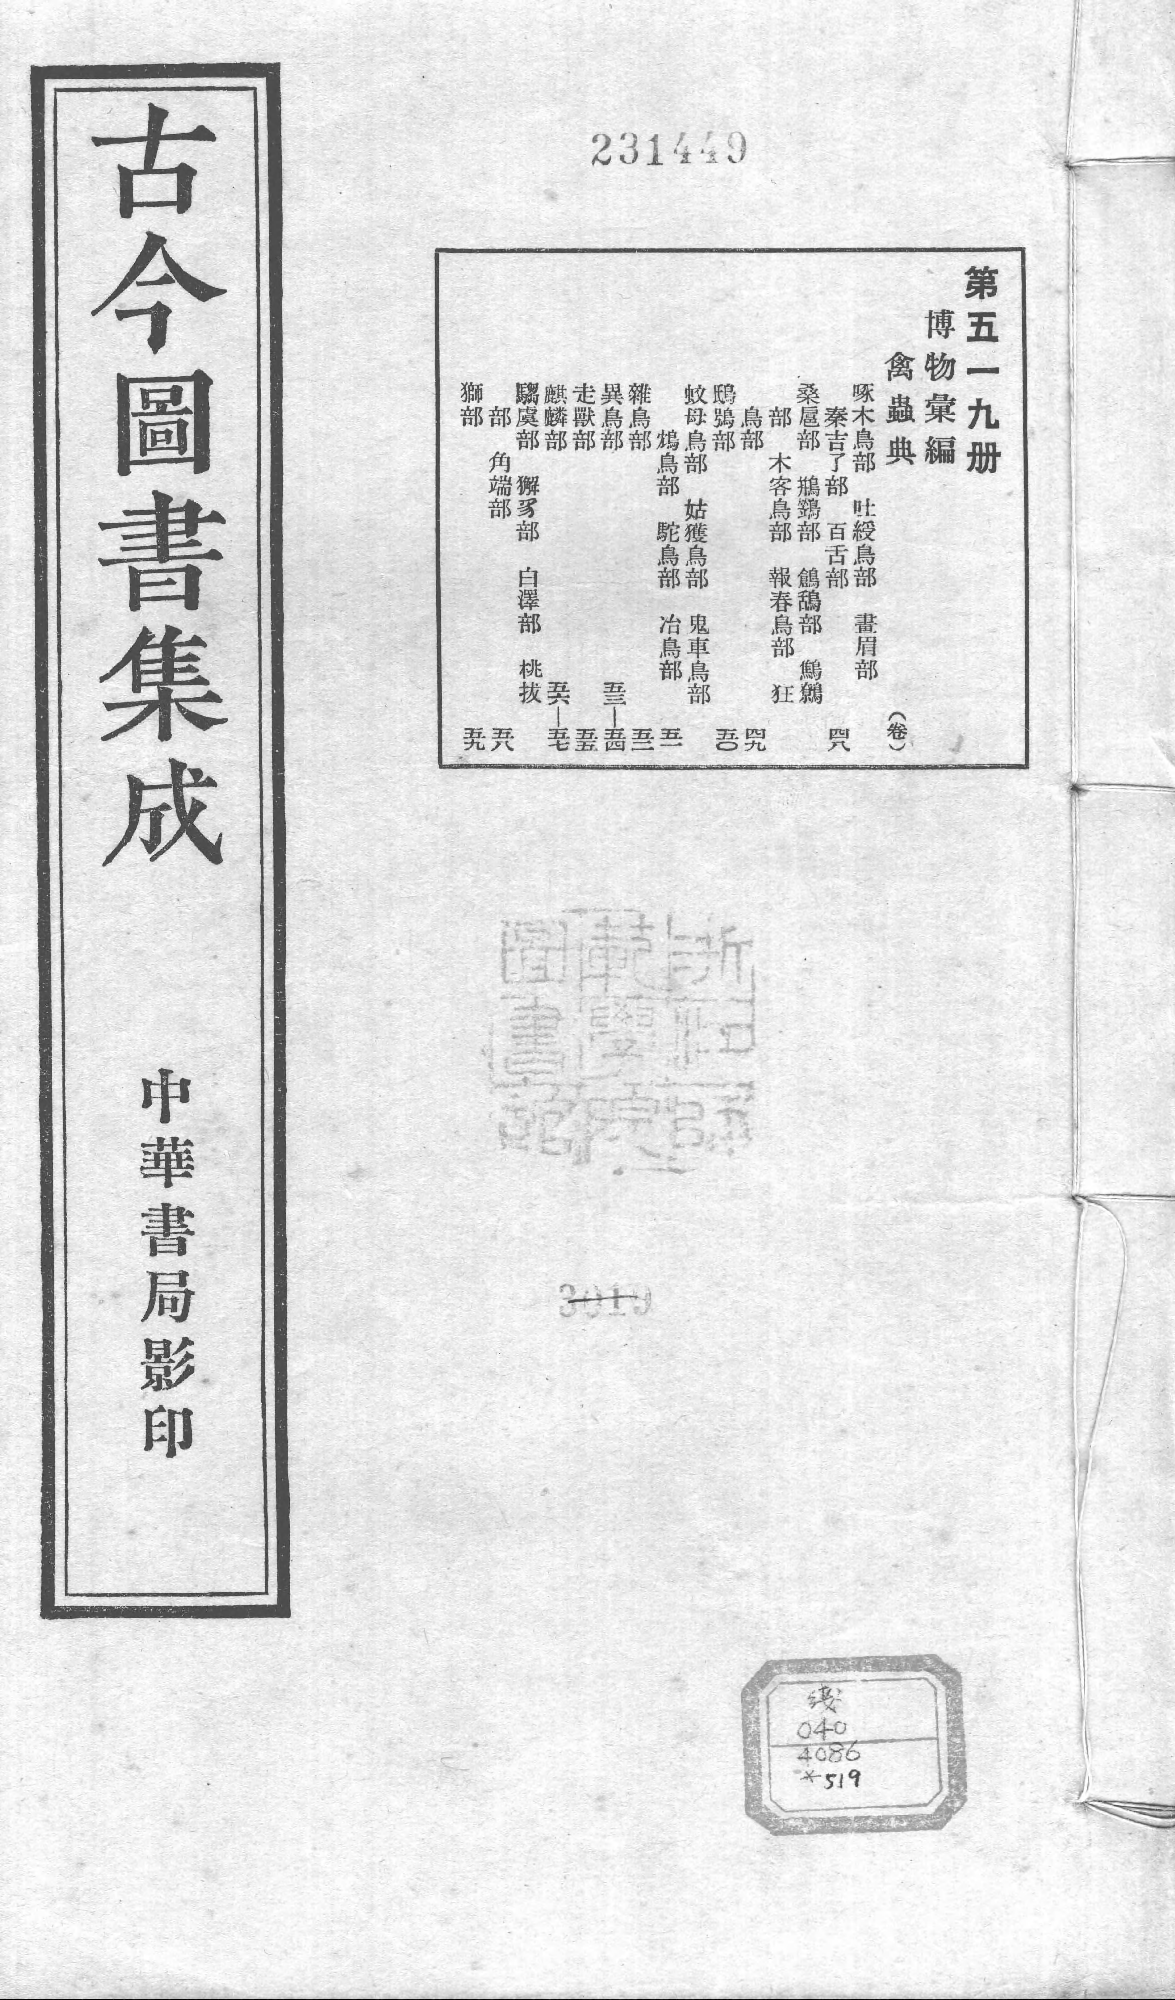 231449
第五一九册
博物彙編
禽蟲典
(卷)
啄木鳥部 吐綬鳥部 畫眉部
秦吉了部 百舌部 四八
桑扈部 鶺鴒部 鶬鴰部 鷦鷯
部 木客鳥部 報春鳥部 狂
鳥部 四九
鴟鴞部 五〇
蚊母鳥部 姑獲鳥部 鬼車鳥部
鴆鳥部 鴕鳥部 冶鳥部 五一
雜鳥部 五二
異鳥部 五三—五四
走獸部 五五
麒麟部 五六—五七
騶虞部 獬豸部 白澤部 桃拔
部 角端部 五八
獅部 五九
古今圖書集成
中華書局影印
浙江師
範學院
圖書館
3019
綫
040
4086
*519